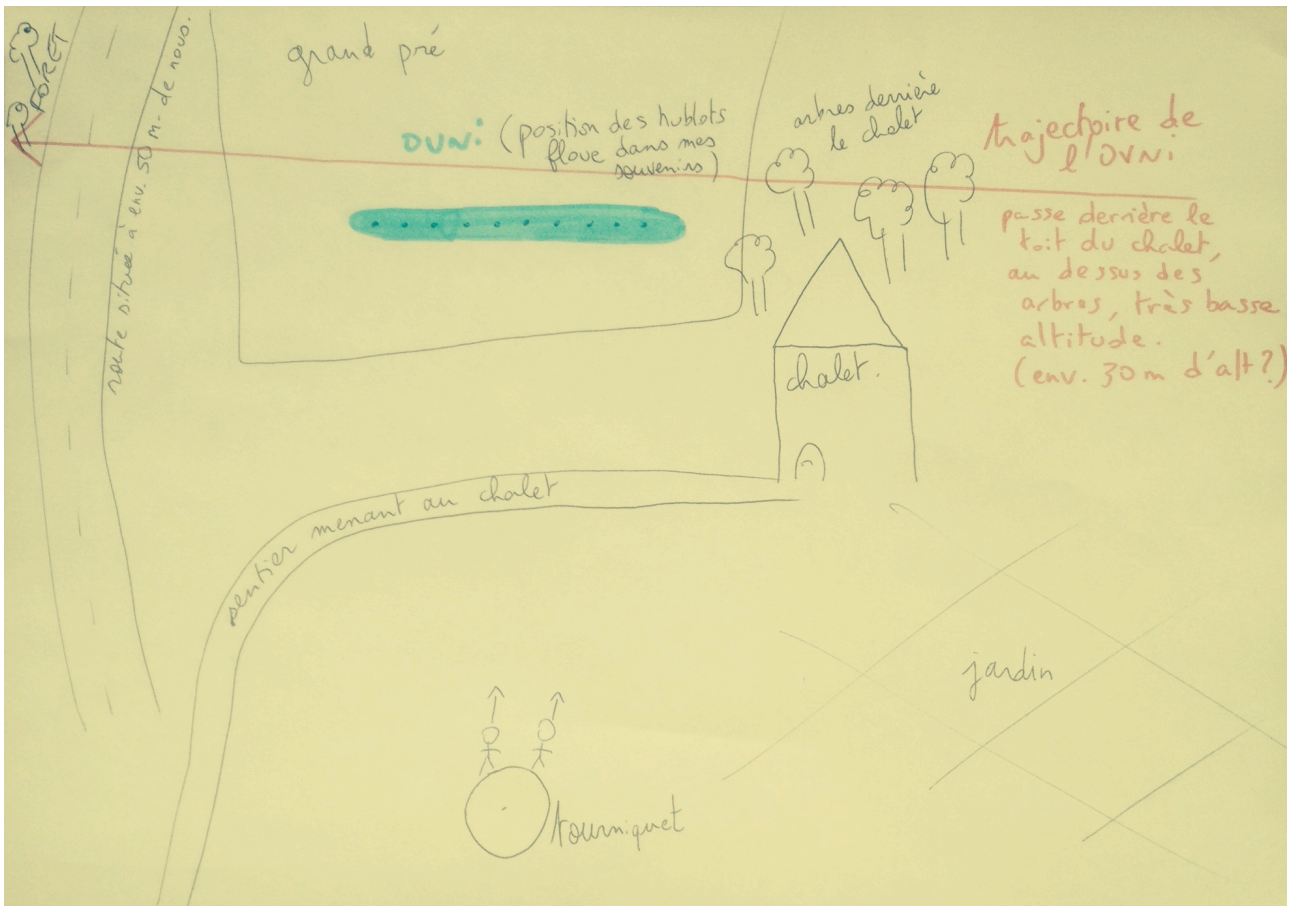 FORÊT
route située à env. 50 m. de nous.
grand pré
OVNi (position des hublots
floue dans mes
souvenirs)
arbres derrière
le chalet
trajectoire de
l'OVNi
passe derrière le
toit du chalet,
au dessus des
arbres, très basse
altitude.
(env. 30 m d'alt?)
chalet.
sentier menant au chalet
jardin
tourniquet